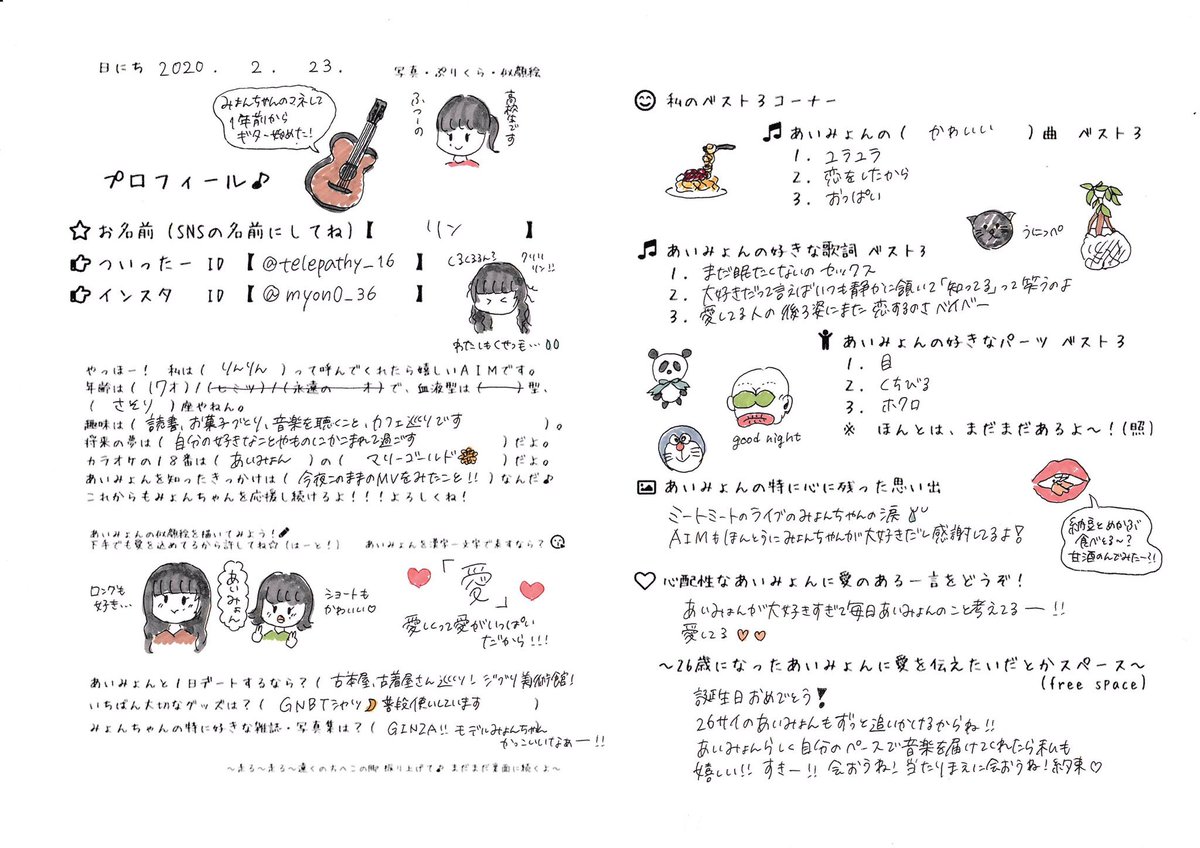 日にち 2020. 2. 23.
写真・ぷりくら・似顔絵
みょんちゃんのマネして
1年前から
ギター始めた!
ふつーの
高校生です
プロフィール♪
☆お名前(SNSの名前にしてね)【 リン 】
ついったー ID 【@telepathy_16 】
インスタ ID 【@myon0_36 】
くるくるるん♪
クリリリン!!
わたしもくせっも…
やっほー! 私は( りんりん )って呼んでくれたら嬉しいAIMです。
年齢は( 17才 )/(ヒミツ)/(永遠の 才)で、血液型は( ー )型、
( さそり )座やねん。
趣味は( 読書、お菓子づくり、音楽を聴くこと、カフェ巡りです )。
将来の夢は( 自分の好きなことやものにかこまれて過ごす )だよ。
カラオケの18番は( あいみょん )の( マリーゴールド )だよ。
あいみょんを知ったきっかけは( 今夜このままのMVをみたこと!! )なんだ♪
これからもみょんちゃんを応援し続けるよ!!!よろしくね!
あいみょんの似顔絵を描いてみよう!
下手でも愛を込めてるから許してね☆(はーと!)
あいみょんを漢字一文字で表すなら?
ロングも
好き…
あいみょん
ショートも
かわいい♡
「愛」
愛しくって愛がいっぱい
だから!!!
あいみょんと1日デートするなら?( 古本屋、古着屋さん巡り! ジブリ美術館!
いちばん大切なグッズは?( GNBTシャツ 普段使いしています )
みょんちゃんの特に好きな雑誌・写真集は?( GINZA!! モデルみょんちゃん
かっこいいけなぁー!!
〜走る〜走る〜遠くの大へこの脚 振り上げて♪ まだまだ裏面に続くよ〜
私のベスト3コーナー
♫あいみょんの( かわいい )曲 ベスト3
1. ユラユラ
2. 恋をしたから
3. おっぱい
うにっぺ
♫あいみょんの好きな歌詞 ベスト3
1. まだ眠たくないの セックス
2. 大好きだって言えばいつも静かに頷いて「知ってる」って笑うのよ
3. 愛してる人の後ろ姿にまた恋するのさ ベイベー
あいみょんの好きなパーツ ベスト3
1. 目
2. くちびる
3. ホクロ
※ ほんとは、まだまだあるよ〜!(照)
good night
あいみょんの特に心に残った思い出
ミートミートのライブのみょんちゃんの涙
AIMもほんとうにみょんちゃんが大好きだし感謝してるよ!
納豆とめかぶ
食べとる〜?
甘酒のんでみたー?!
♡心配性なあいみょんに愛のある一言をどうぞ!
あいみょんが大好きすぎて毎日あいみょんのこと考えてるー!!
愛してる♡♡
〜26歳になったあいみょんに愛を伝えたいだとかスペース〜
(free space)
誕生日おめでとう!
26サイのあいみょんもずっと追いかけるからね!!
あいみょんらしく自分のペースで音楽を届けてくれたら私も
嬉しい!! すきー!! 会おうね!当たりまえに会おうね!約束♡